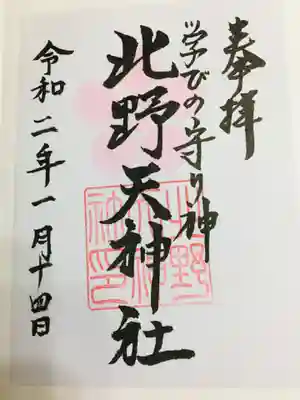 奉拝
学びの守り神
北野天神社
令和二年一月十四日